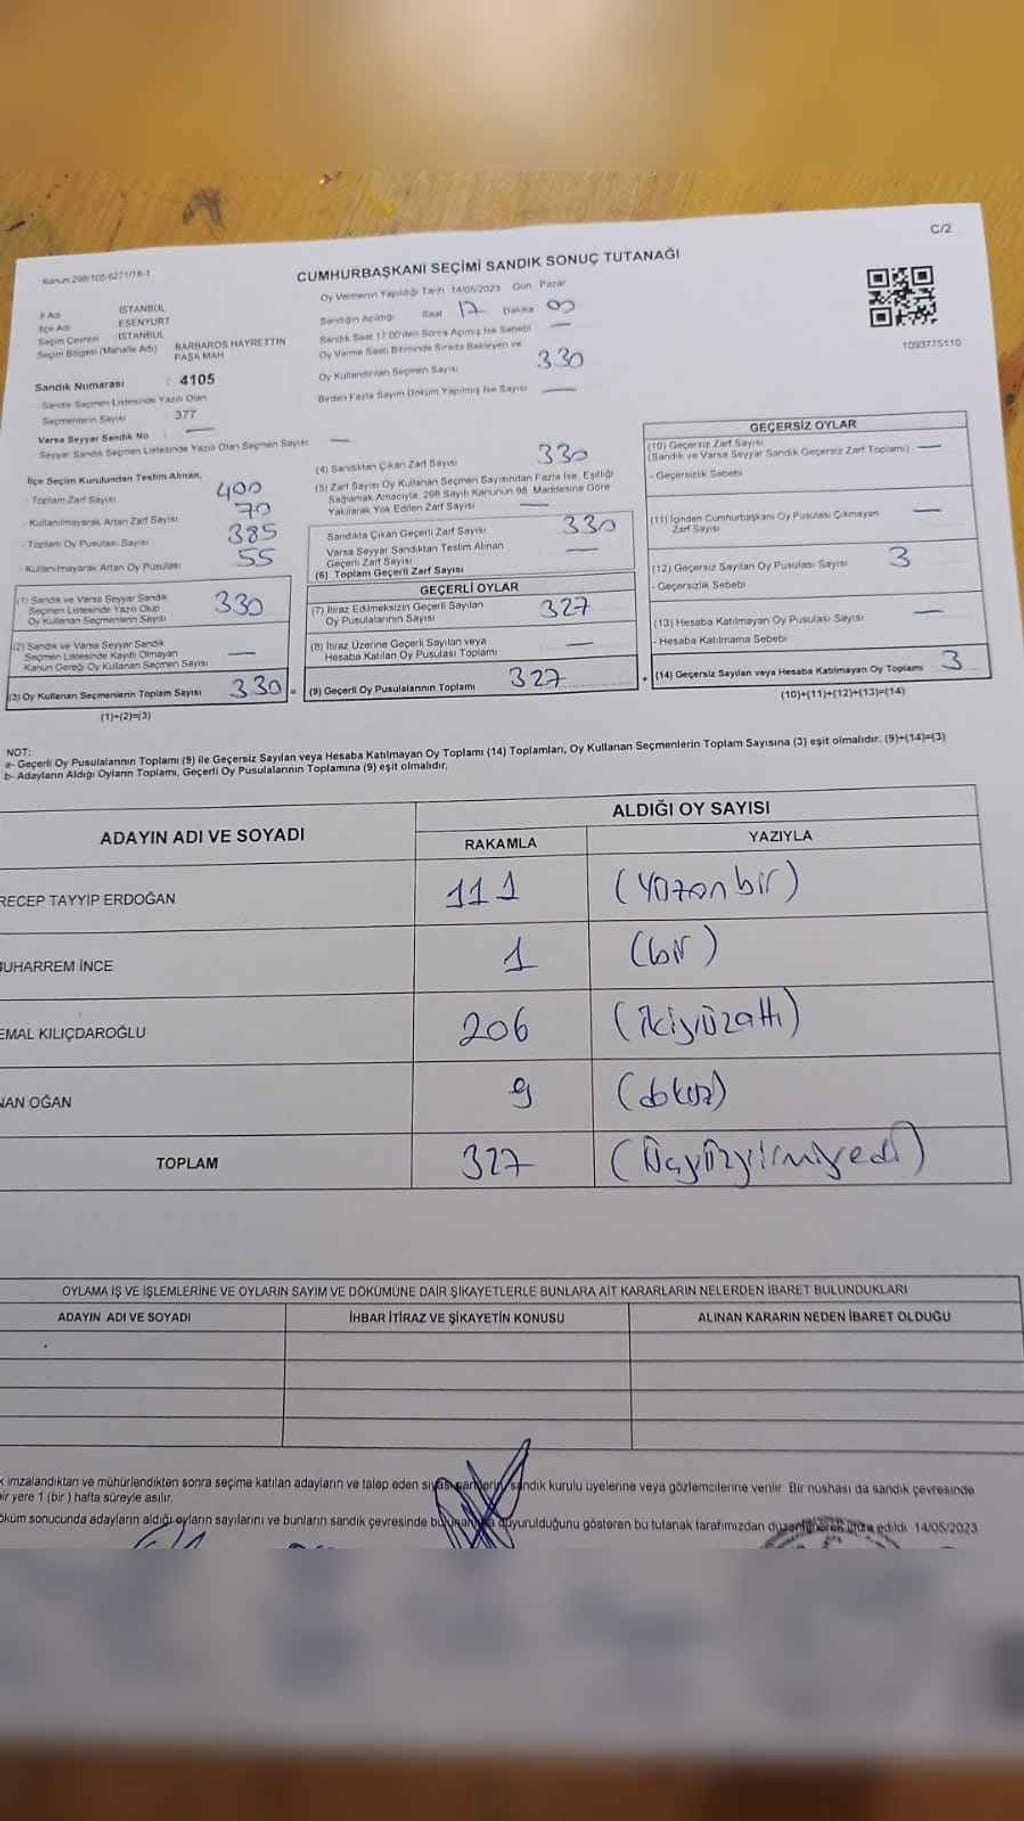 C/2
Kanun:298/105-6271/18-1
CUMHURBAŞKANI SEÇİMİ SANDIK SONUÇ TUTANAĞI
Oy Vermenin Yapıldığı Tarih 14/05/2023 Gün Pazar
İl Adı İSTANBUL
İlçe Adı ESENYURT
Seçim Çevresi İSTANBUL
Seçim Bölgesi (Mahalle Adı) BARBAROS HAYRETTİN PAŞA MAH
Sandık Numarası : 4105
Sandık Seçmen Listesinde Yazılı Olan
Seçmenlerin Sayısı 377
Varsa Seyyar Sandık No —
Seyyar Sandık Seçmen Listesinde Yazılı Olan Seçmen Sayısı —
Sandığın Açıldığı Saat 17 Dakika 00
Sandık Saat 17:00'den Sonra Açılmış İse Sebebi —
Oy Verme Saati Bitiminde Sırada Bekleyen ve
Oy Kullandırılan Seçmen Sayısı 330
Birden Fazla Sayım Döküm Yapılmış İse Sayısı —
1093775110
İlçe Seçim Kurulundan Teslim Alınan,
- Toplam Zarf Sayısı 400
- Kullanılmayarak Artan Zarf Sayısı 70
- Toplam Oy Pusulası Sayısı 385
- Kullanılmayarak Artan Oy Pusulası 55
(1) Sandık ve Varsa Seyyar Sandık
Seçmen Listesinde Yazılı Olup
Oy Kullanan Seçmenlerin Sayısı 330
(2) Sandık ve Varsa Seyyar Sandık
Seçmen Listesinde Kayıtlı Olmayan
Kanun Gereği Oy Kullanan Seçmen Sayısı —
(3) Oy Kullanan Seçmenlerin Toplam Sayısı 330 =
(1)+(2)=(3)
(4) Sandıktan Çıkan Zarf Sayısı 330
(5) Zarf Sayısı Oy Kullanan Seçmen Sayısından Fazla İse, Eşitliği
Sağlamak Amacıyla, 298 Sayılı Kanunun 98. Maddesine Göre
Yakılarak Yok Edilen Zarf Sayısı —
Sandıkta Çıkan Geçerli Zarf Sayısı 330
Varsa Seyyar Sandıktan Teslim Alınan
Geçerli Zarf Sayısı —
(6) Toplam Geçerli Zarf Sayısı
GEÇERLİ OYLAR
(7) İtiraz Edilmeksizin Geçerli Sayılan
Oy Pusulalarının Sayısı 327
(8) İtiraz Üzerine Geçerli Sayılan veya
Hesaba Katılan Oy Pusulası Toplamı —
(9) Geçerli Oy Pusulalarının Toplamı 327 +
GEÇERSİZ OYLAR
(10) Geçersiz Zarf Sayısı
(Sandık ve Varsa Seyyar Sandık Geçersiz Zarf Toplamı) —
- Geçersizlik Sebebi
(11) İçinden Cumhurbaşkanı Oy Pusulası Çıkmayan
Zarf Sayısı —
(12) Geçersiz Sayılan Oy Pusulası Sayısı 3
- Geçersizlik Sebebi
(13) Hesaba Katılmayan Oy Pusulası Sayısı —
- Hesaba Katılmama Sebebi
(14) Geçersiz Sayılan veya Hesaba Katılmayan Oy Toplamı 3
(10)+(11)+(12)+(13)=(14)
NOT:
a- Geçerli Oy Pusulalarının Toplamı (9) ile Geçersiz Sayılan veya Hesaba Katılmayan Oy Toplamı (14) Toplamları, Oy Kullanan Seçmenlerin Toplam Sayısına (3) eşit olmalıdır. (9)+(14)=(3)
b- Adayların Aldığı Oyların Toplamı, Geçerli Oy Pusulalarının Toplamına (9) eşit olmalıdır.
ADAYIN ADI VE SOYADI
ALDIĞI OY SAYISI
RAKAMLA YAZIYLA
RECEP TAYYİP ERDOĞAN 111 (Yüzonbir)
MUHARREM İNCE 1 (bir)
EMAL KILIÇDAROĞLU 206 (ikiyüzaltı)
NAN OĞAN 9 (dokuz)
TOPLAM 327 (Üçyüzyirmiyedi)
OYLAMA İŞ VE İŞLEMLERİNE VE OYLARIN SAYIM VE DÖKÜMÜNE DAİR ŞİKAYETLERLE BUNLARA AİT KARARLARIN NELERDEN İBARET BULUNDUKLARI
ADAYIN ADI VE SOYADI İHBAR İTİRAZ VE ŞİKAYETİN KONUSU ALINAN KARARIN NEDEN İBARET OLDUĞU
k imzalandıktan ve mühürlendikten sonra seçime katılan adayların ve talep eden siyasi partilerin sandık kurulu üyelerine veya gözlemcilerine verilir. Bir nüshası da sandık çevresinde
bir yere 1 (bir ) hafta süreyle asılır.
öküm sonucunda adayların aldığı oyların sayılarını ve bunların sandık çevresinde duyurulduğunu gösteren bu tutanak tarafımızdan imza edildi. 14/05/2023